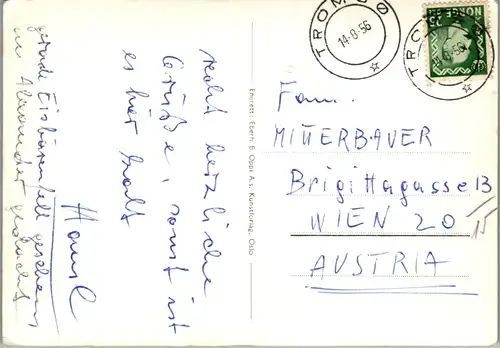 recht herzliche
Grüße, sonst ist
es hier kalt
Hansl
gerade Eisbärenfell gesehen
an Alexander gedacht
Enerett: Eberh. B. Oppi A.s. Kunstforlag, Oslo
TROMSØ
14-8-56
TRO
8-56
NOREG
25
Fam.
MITTERBAUER
Brigittagasse 13
WIEN 20
15
AUSTRIA